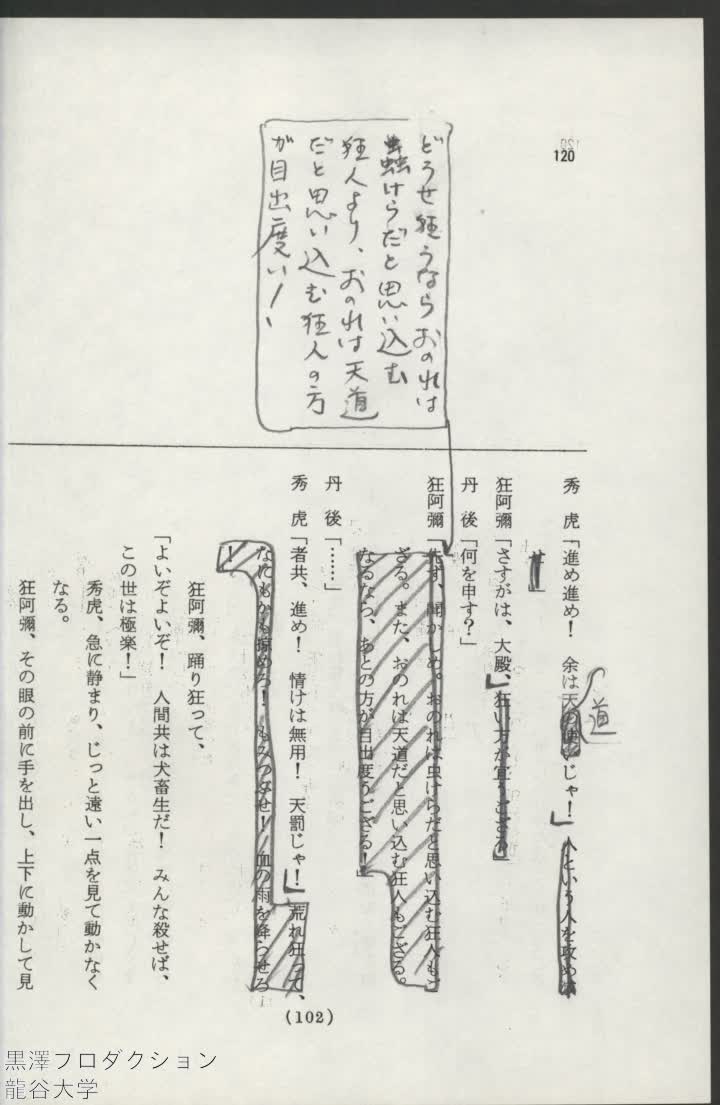 120
どうせ狂うならおのれは
蟲けらだと思い込む
狂人より、おのれは天道
だと思い込む狂人の方
が目出度い！、
秀　虎「進め進め！　余は天の使いじゃ！」人という人を攻め
道
せ」
狂阿彌「さすがは、大殿、」狂い方が宜うござる」
丹　後「何を申す？」
狂阿彌「先ず、聞かしめ。おのれは虫けらだと思い込む狂人もご
ざる。また、おのれは天道だと思い込む狂人もござる。
なるなら、あとの方が目出度うござる！」
丹　後「……」
秀　虎「者共、進め！　情けは無用！　天罰じゃ！」荒れ狂って、
なにもかも掠めろ！　もみつぶせ！　血の雨を降らせろ
！
狂阿彌、踊り狂って、
「よいぞよいぞ！　人間共は犬畜生だ！　みんな殺せば、
この世は極楽！」
秀虎、急に静まり、じっと遠い一点を見て動かなく
なる。
狂阿彌、その眼の前に手を出し、上下に動かして見
(102)
黒澤プロダクション
龍谷大学